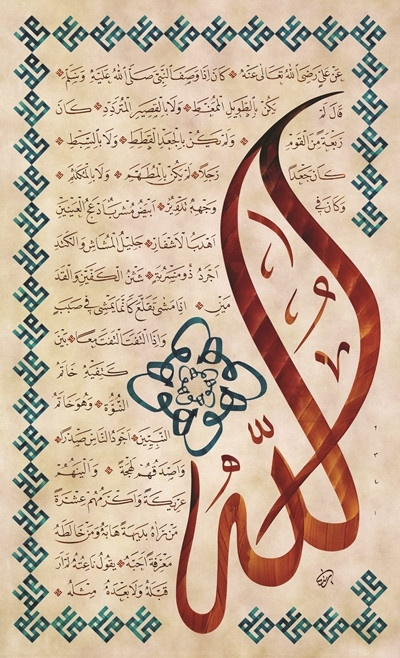 عَنْ عَلِيٍّ رَضِيَ اللهُ تَعَالَى عَنْهُ كَانَ إِذَا وَصَفَ النَّبِيَّ صَلَّى اللهُ عَلَيْهِ وَسَلَّمَ
قَالَ لَمْ يَكُنْ بِالطَّوِيلِ الْمُمَّغِطِ وَلَا بِالْقَصِيرِ الْمُتَرَدِّدِ كَانَ
رَبْعَةً مِنَ الْقَوْمِ وَلَمْ يَكُنْ بِالْجَعْدِ الْقَطَطِ وَلَا بِالسَّبِطِ
كَانَ جَعْدًا رَجِلًا لَمْ يَكُنْ بِالْمُطَهَّمِ وَلَا بِالْمُكَلْثَمِ
وَكَانَ فِي وَجْهِهِ تَدْوِيرٌ أَبْيَضُ مُشْرَبٌ أَدْعَجُ الْعَيْنَيْنِ
أَهْدَبُ الْأَشْفَارِ جَلِيلُ الْمُشَاشِ وَالْكَتَدِ
أَجْرَدُ ذُو مَسْرُبَةٍ شَثْنُ الْكَفَّيْنِ وَالْقَدَ
مَيْنِ إِذَا مَشَى تَقَلَّعَ كَأَنَّمَا يَمْشِي فِي صَبَبٍ
وَإِذَا الْتَفَتَ الْتَفَتَ مَعًا بَيْنَ
كَتِفَيْهِ خَاتَمُ
النُّبُوَّةِ وَهُوَ خَاتَمُ
النَّبِيِّينَ أَجْوَدُ النَّاسِ صَدْرًا
وَأَصْدَقُهُمْ لَهْجَةً وَأَلْيَنُهُمْ
عَرِيكَةً وَأَكْرَمُهُمْ عِشْرَةً
مَنْ رَآهُ بَدِيهَةً هَابَهُ وَمَنْ خَالَطَهُ
مَعْرِفَةً أَحَبَّهُ يَقُولُ نَاعِتُهُ لَمْ أَرَ
قَبْلَهُ وَلَا بَعْدَهُ مِثْلَهُ
الله